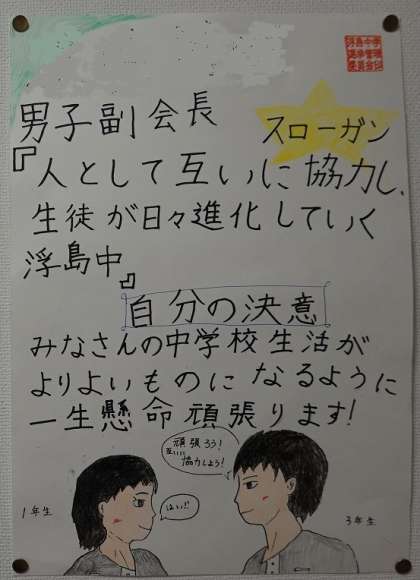 男子副会長
スローガン
『人として互いに協力し、
生徒が日々進化していく
浮島中』
自分の決意
みなさんの中学校生活が
よりよいものになるように
一生懸命頑張ります!
頑張ろう!
互いに
協力しよう!
はい!!
1年生
3年生